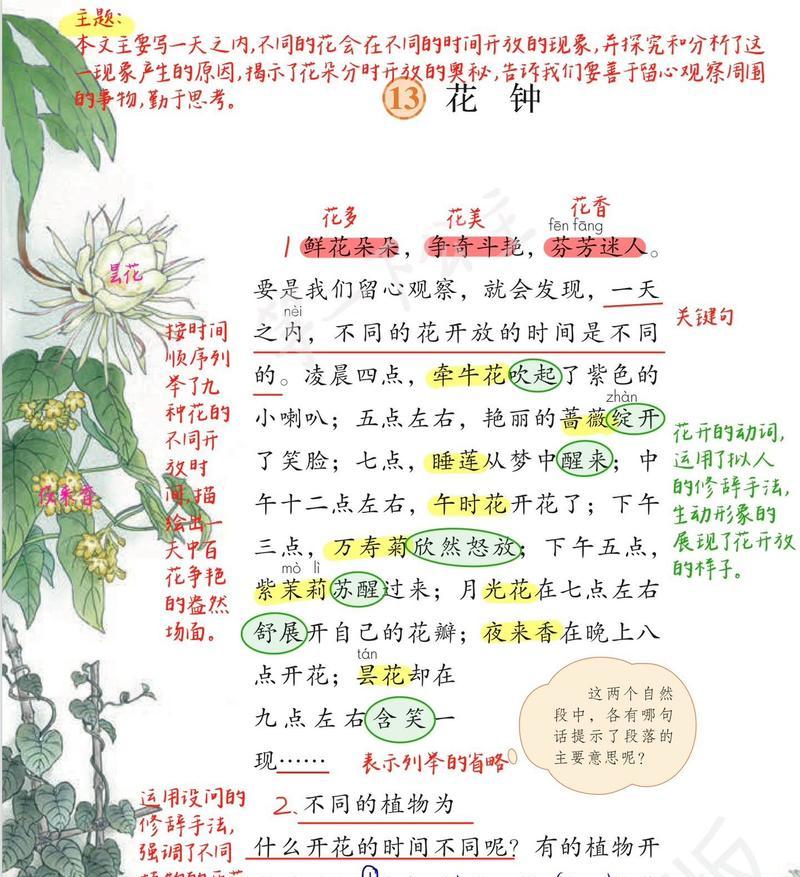 主题:
本文主要写一天之内,不同的花会在不同的时间开放的现象,并探究和分析了这
一现象产生的原因,揭示了花朵分时开放的奥秘,告诉我们要善于留心观察周围
的事物,勤于思考。
13 花 钟
花多 花美 花香
fēn fāng
1 鲜花朵朵，争奇斗艳，芬芳迷人。
要是我们留心观察，就会发现，一天
nèi
之内，不同的花开放的时间是不同
的。凌晨四点，牵牛花吹起了紫色的
zhàn
小喇叭；五点左右，艳丽的蔷薇绽开
了笑脸；七点，睡莲从梦中醒来；中
午十二点左右，午时花开花了；下午
三点，万寿菊欣然怒放；下午五点，
mò lì
紫茉莉苏醒过来；月光花在七点左右
舒展开自己的花瓣；夜来香在晚上八
tán
点开花；昙花却在
九点左右含笑一
现……
表示列举的省略
关键句
昙花
夜来香
按时间
顺序列
举了九
种花的
不同开
放时
间,描
绘出一
天中百
花争艳
的盎然
场面。
花开的动词,
运用了拟人
的修辞手法,
生动形象的
展现了花开放
的样子。
这两个自然
段中，各有哪句
话提示了段落的
主要意思呢？
2. 不同的植物为
什么开花的时间不同呢？有的植物开
运用设问的
修辞手法,
强调了不同